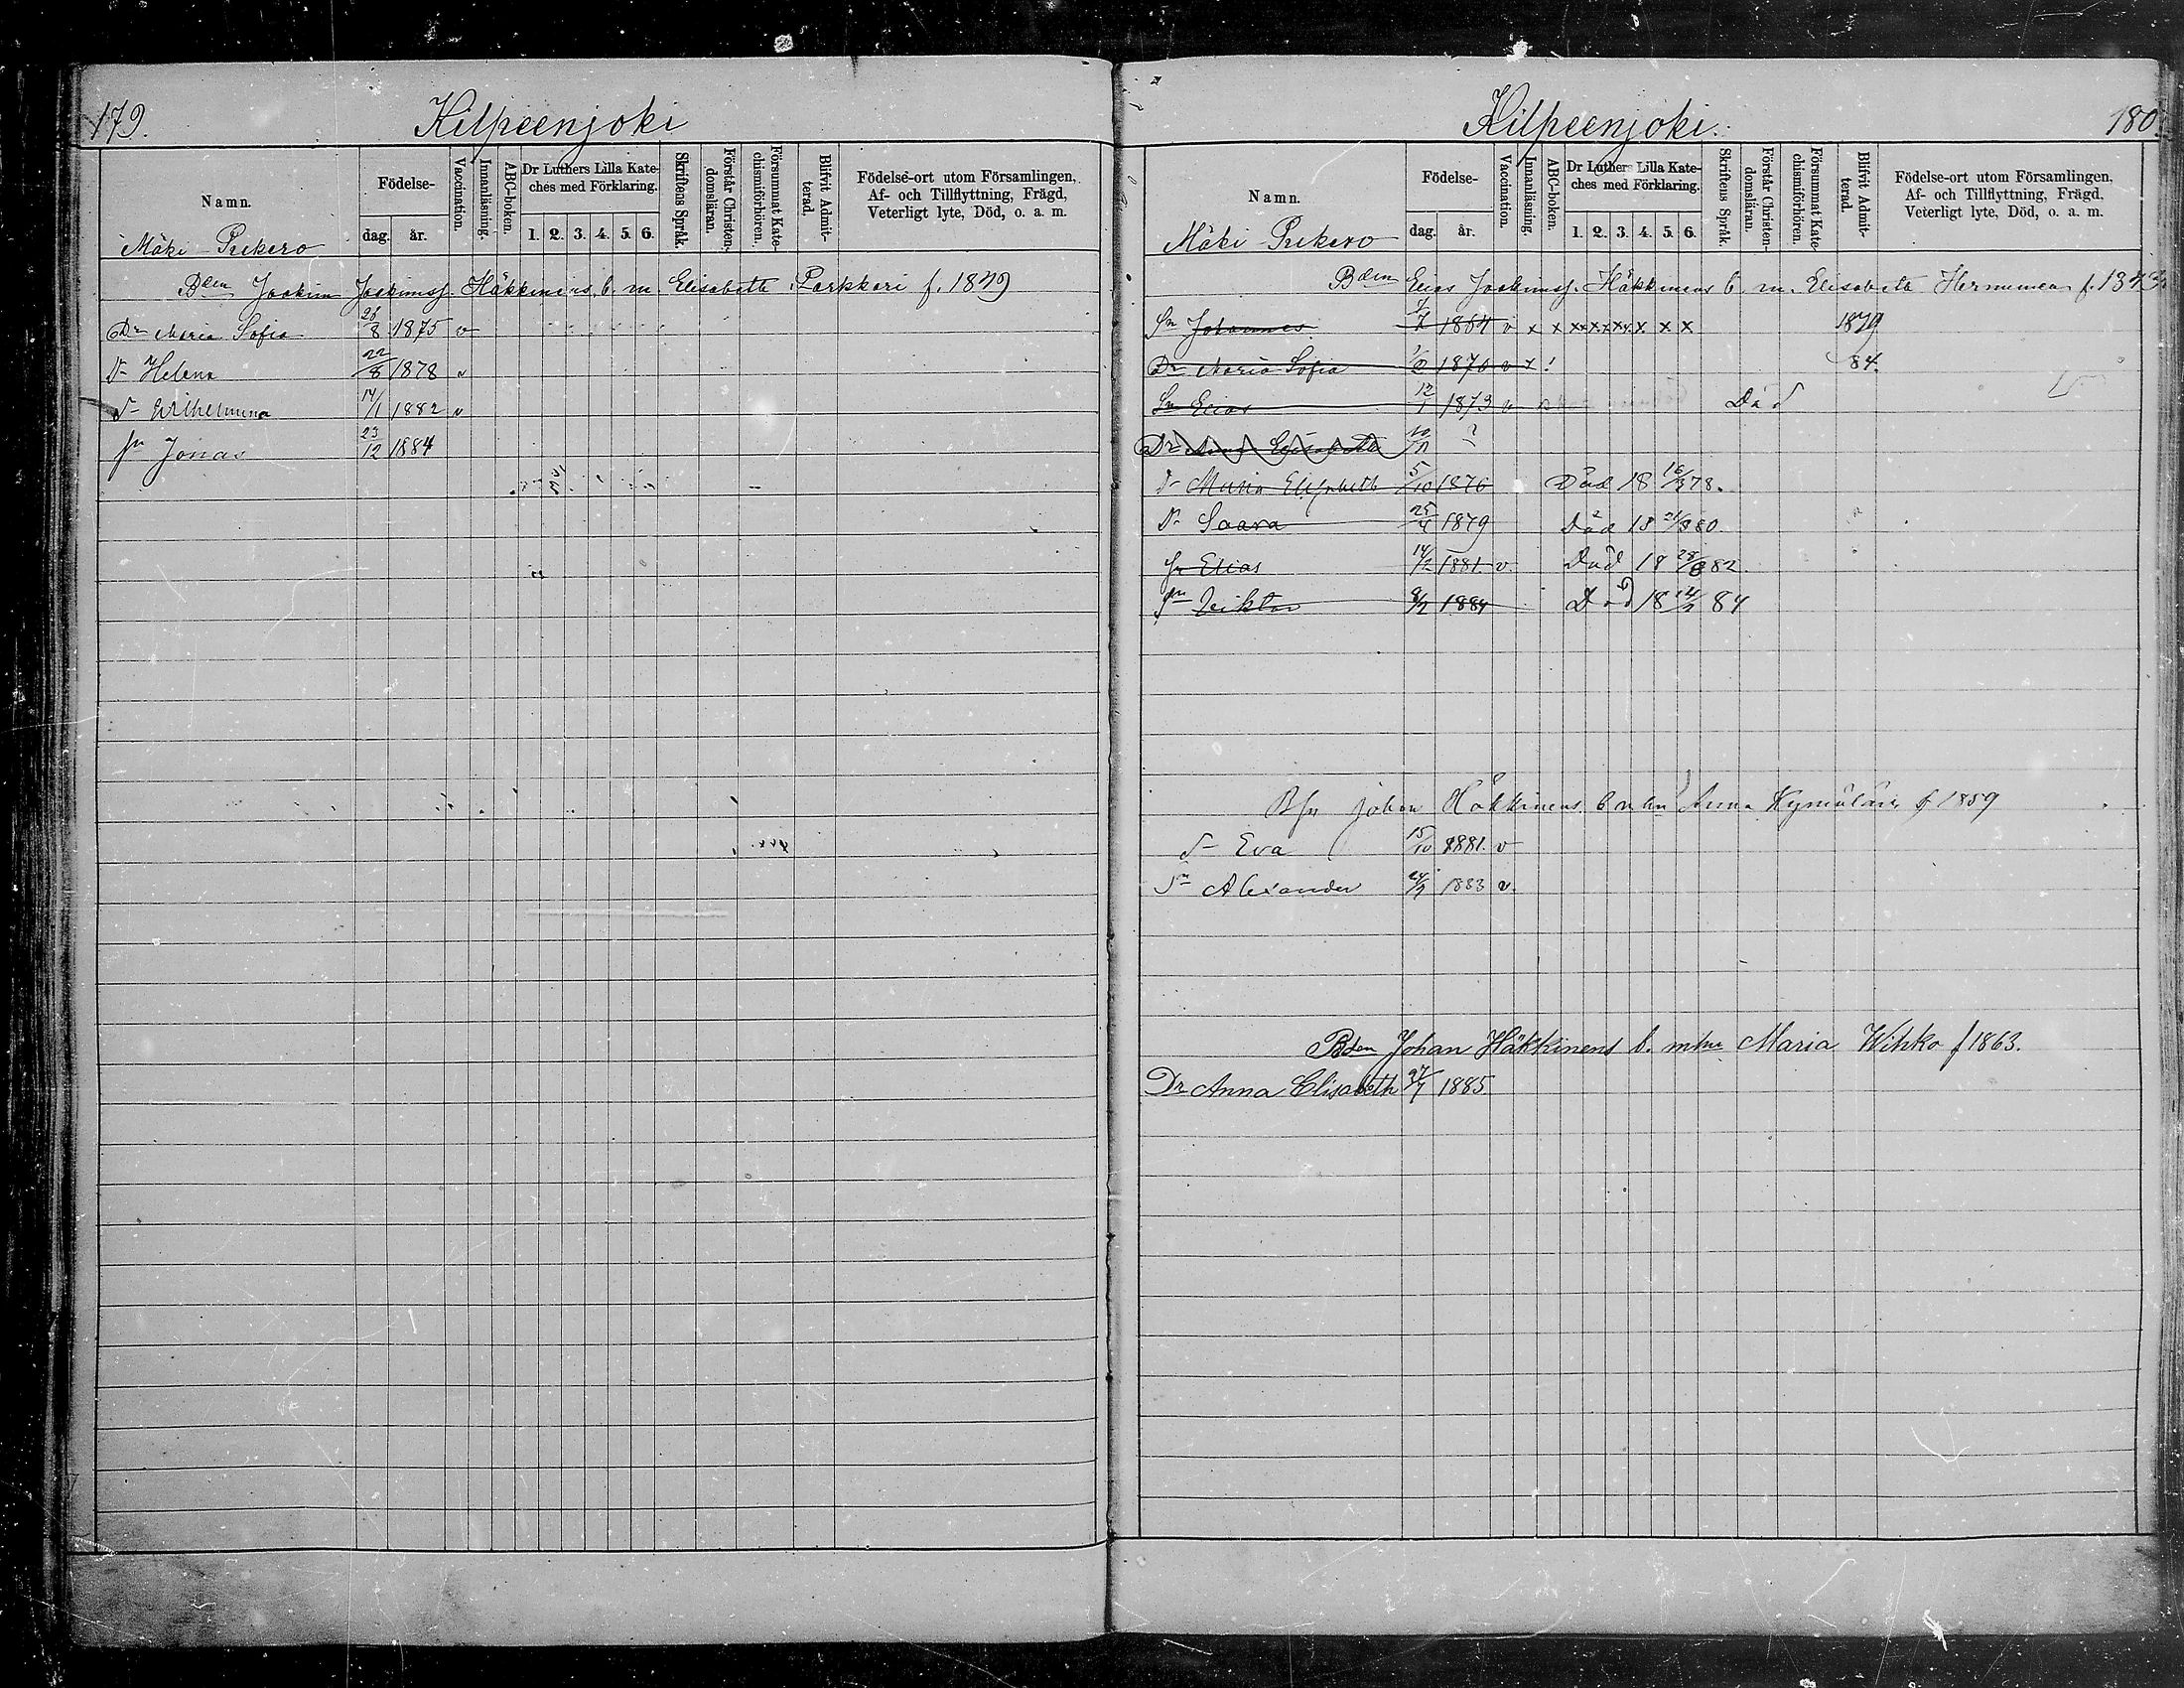 179.
Kilpeenjoki
Namn.
Födelse-
dag.
år.
Vaccination.
Innanläsning.
ABC-boken.
Dr Luthers Lilla Kate-
ches med Förklaring.
1. 2. 3. 4. 5. 6.
Skriftens Språk.
Förstår Christen-
domsläran.
Försummat Kate-
chismiförhören.
Blifvit Admit-
terad.
Födelse-ort utom Församlingen,
Af- och Tillflyttning, Frägd,
Veterligt lyte, Död, o. a. m.
Mäki Pukero
Bden Joakim Joakimsj. Häkkinens b. m. Elisabeth Parkkari f. 1849
Dr Maria Sofia 26/8 1875 v
Dr Helena 22/8 1878 v
Dr Wilhelmina 14/1 1882 v
Sn Jonas 23/12 1884
Kilpeenjoki.
180.
Namn.
Födelse-
dag.
år.
Vaccination.
Innanläsning.
ABC-boken.
Dr Luthers Lilla Kate-
ches med Förklaring.
1. 2. 3. 4. 5. 6.
Skriftens Språk.
Förstår Christen-
domsläran.
Försummat Kate-
chismiförhören.
Blifvit Admit-
terad.
Födelse-ort utom Församlingen,
Af- och Tillflyttning, Frägd,
Veterligt lyte, Död, o. a. m.
Mäki Pukero
Bden Elias Joakimsj. Häkkinens b. m. Elisabeta
Sn Johannes 1864 v x x x x x x x x x 1879
Dr Maria Sofia 1870 v x ! 84.
Sn Elias 12/1 1873 v Död
Dr Anna Elisabeth ?
Dr Maria Elisabeth 5/10 1876 Död 18 78.
Dr Saara 25/4 1879 Död 18 21/3 80.
Sn Elias 14/2 1881. v. Död 18 82
Sn Viktor 1884 Död 18 84
Johan Häkkinens b m hu Anna f 1859
Dr Eva 15/10 1881. v
Sn Alexander 1883 v.
Bden Johan Häkkinens b. m hu Maria Wihko f 1863.
Dr Anna Elisabeth 27/7 1885.